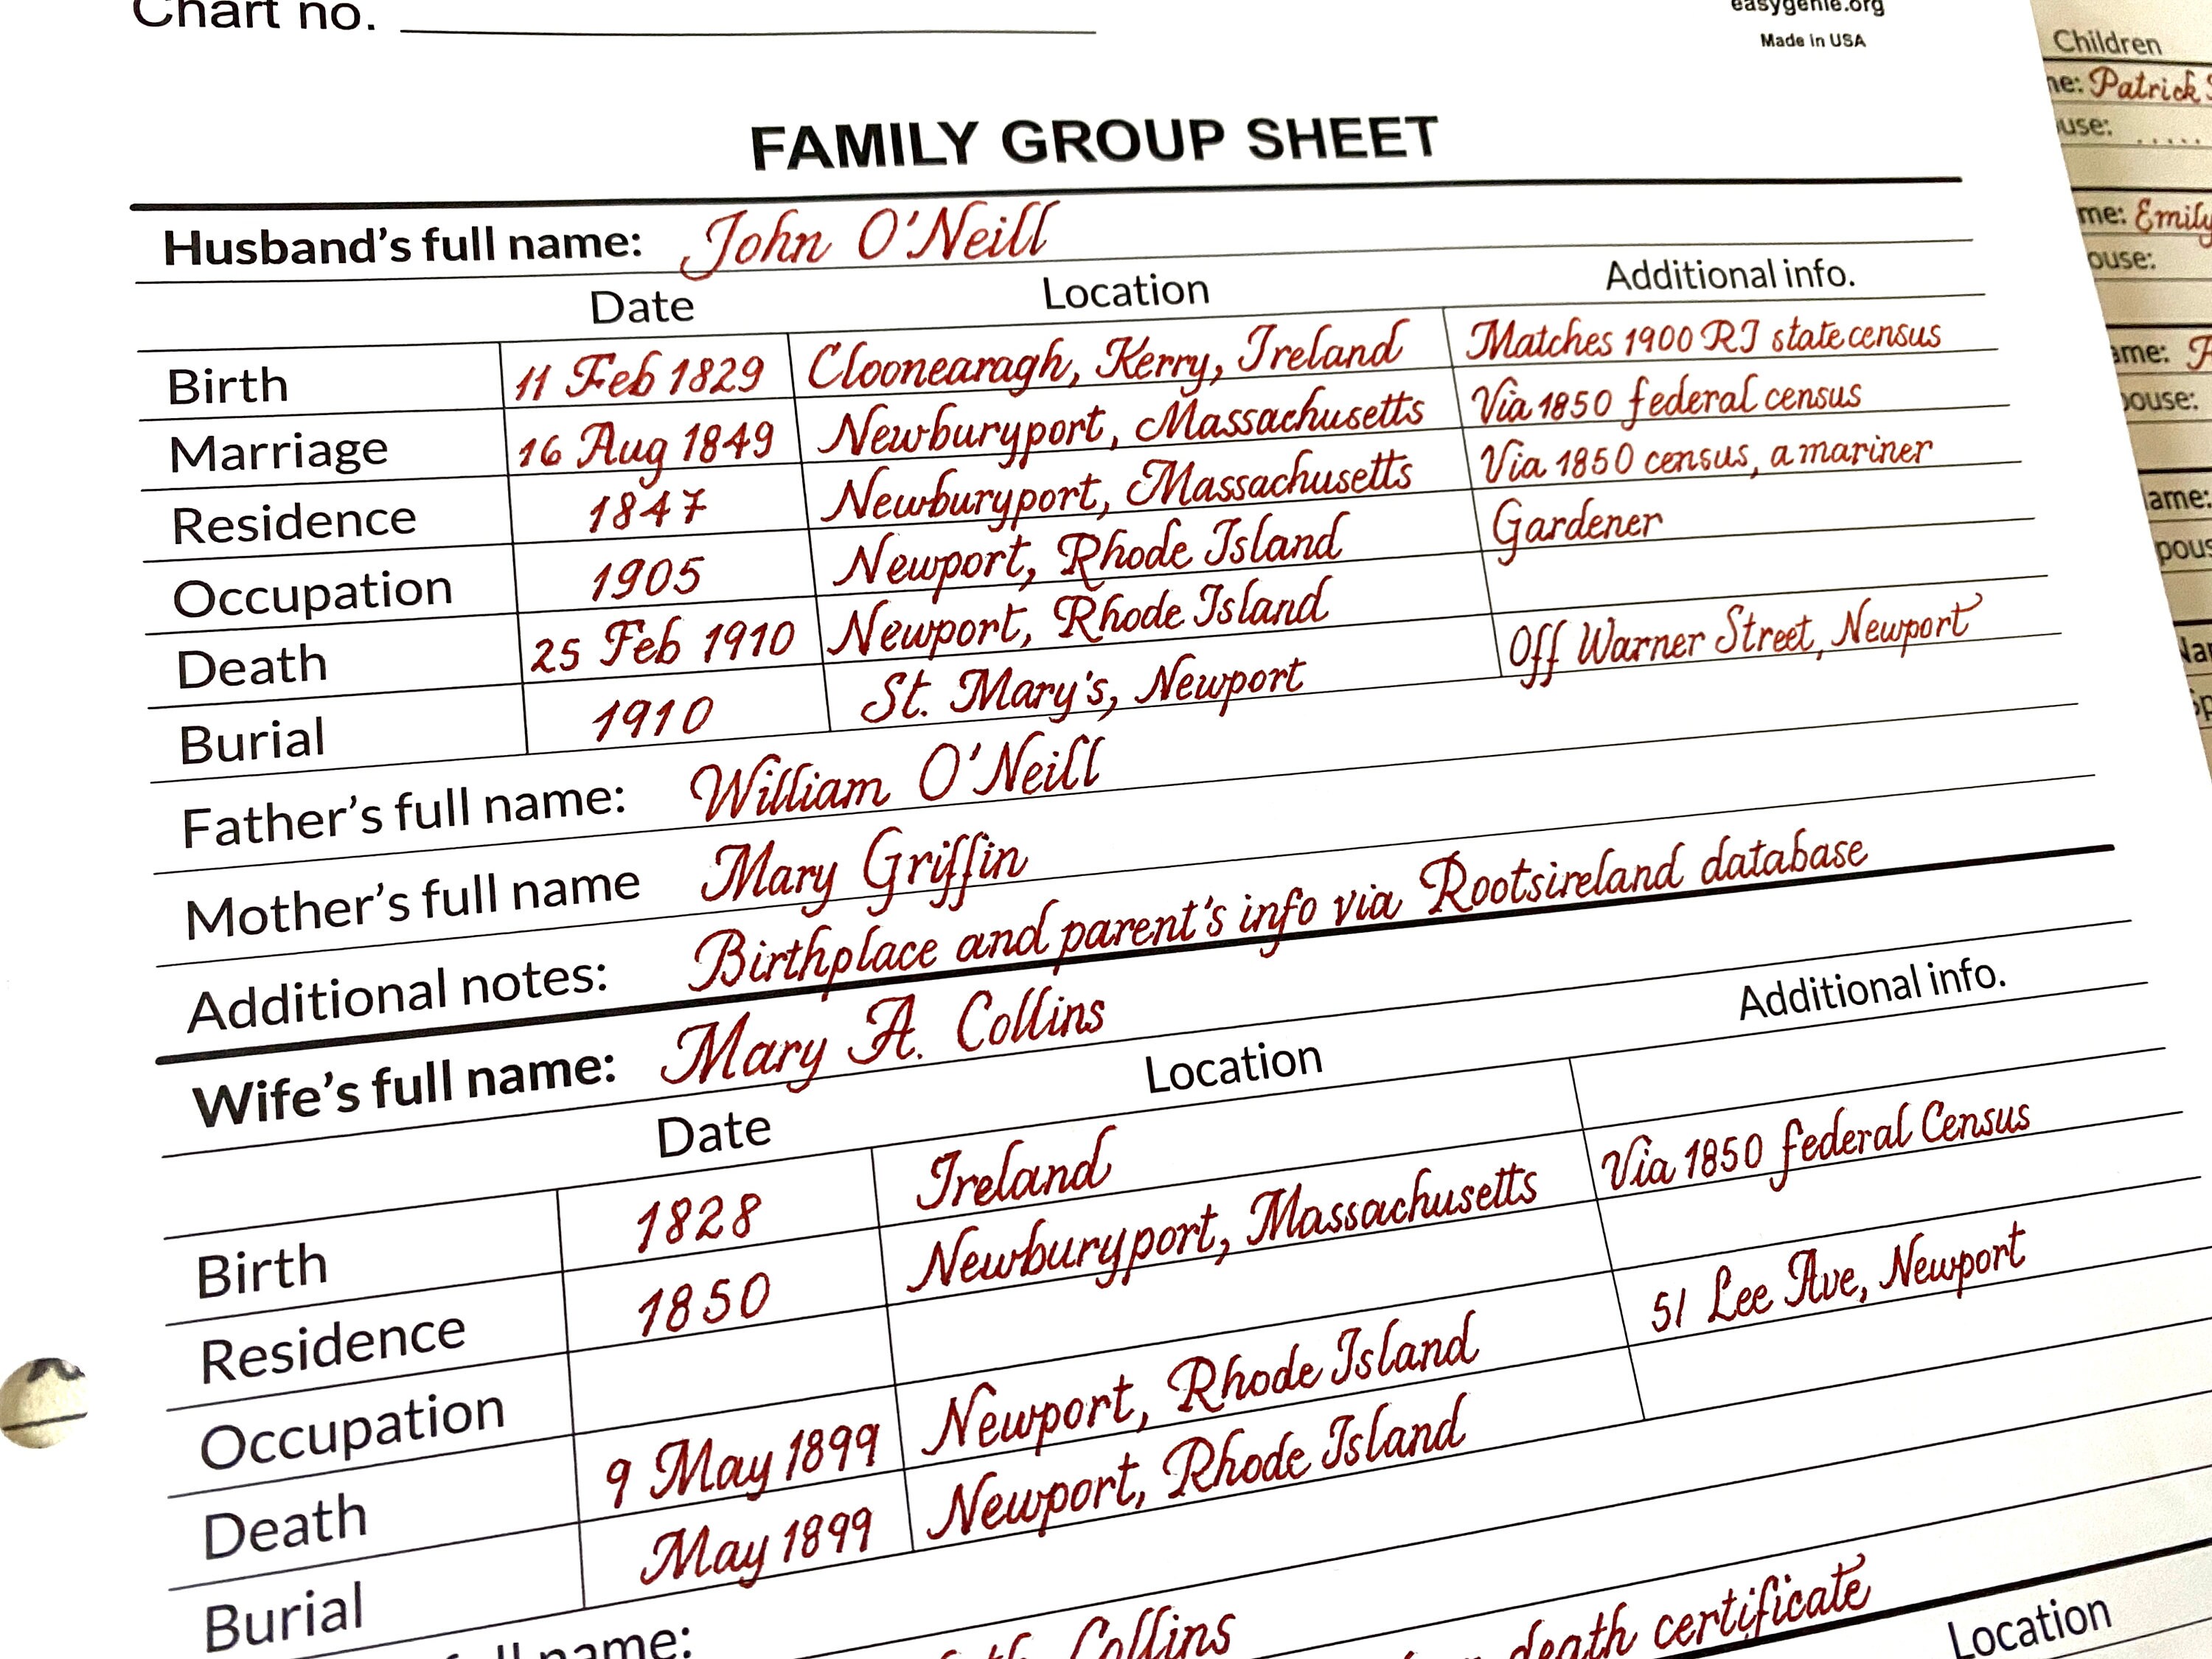 Chart no.
easygenie.org
Made in USA
FAMILY GROUP SHEET
Husband's full name: John O'Neill
Date Location Additional info.
Birth 11 Feb 1829 Cloonearagh, Kerry, Ireland Matches 1900 RI state census
Marriage 16 Aug 1849 Newburyport, Massachusetts Via 1850 federal census
Residence 1847 Newburyport, Massachusetts Via 1850 census, a mariner
Occupation 1905 Newport, Rhode Island Gardener
Death 25 Feb 1910 Newport, Rhode Island
Burial 1910 St. Mary's, Newport Off Warner Street, Newport
Father's full name: William O'Neill
Mother's full name Mary Griffin
Additional notes: Birthplace and parent's info via Rootsireland database
Wife's full name: Mary A. Collins
Date Location Additional info.
Birth 1828 Ireland
Residence 1850 Newburyport, Massachusetts Via 1850 federal Census
Occupation
Death 9 May 1899 Newport, Rhode Island 51 Lee Ave, Newport
Burial May 1899 Newport, Rhode Island
name: Collins
death certificate
Location
Children
Patrick
Emily